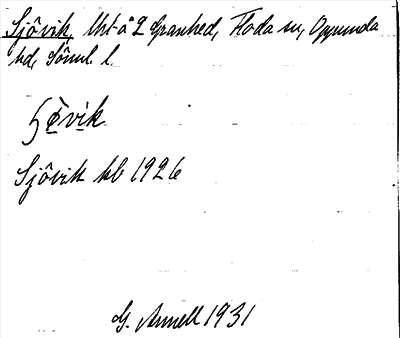 Sjövik, lht å 2 Granhed, Floda sn, Oppunda
hd, Söml. l.
Sjövik kb 1926
G. Annell 1931